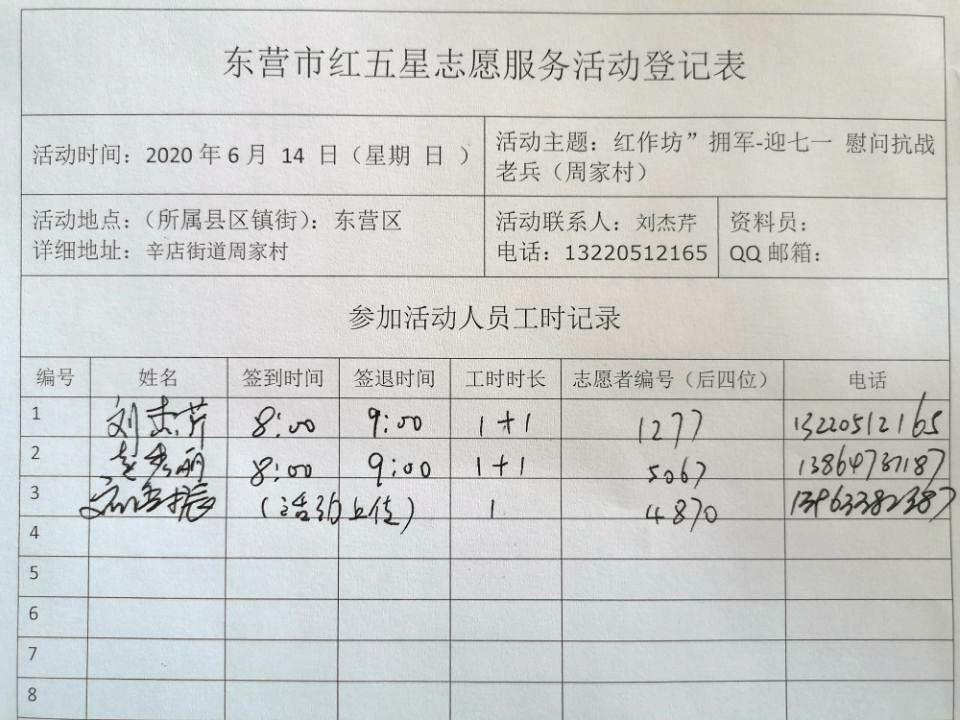 东营市红五星志愿服务活动登记表
活动时间：2020 年 6 月 14 日（星期 日 ）
活动主题：红作坊”拥军-迎七一 慰问抗战
老兵（周家村）
活动地点：（所属县区镇街）：东营区
详细地址：辛店街道周家村
活动联系人：刘杰芹
电话：13220512165
资料员：
QQ 邮箱：
参加活动人员工时记录
编号 姓名 签到时间 签退时间 工时时长 志愿者编号（后四位） 电话
1 刘杰芹 8:00 9:00 1+1 1277 13220512165
2 8:00 9:00 1+1 5067 13864737187
3 （活动上传） 1 4870
4
5
6
7
8